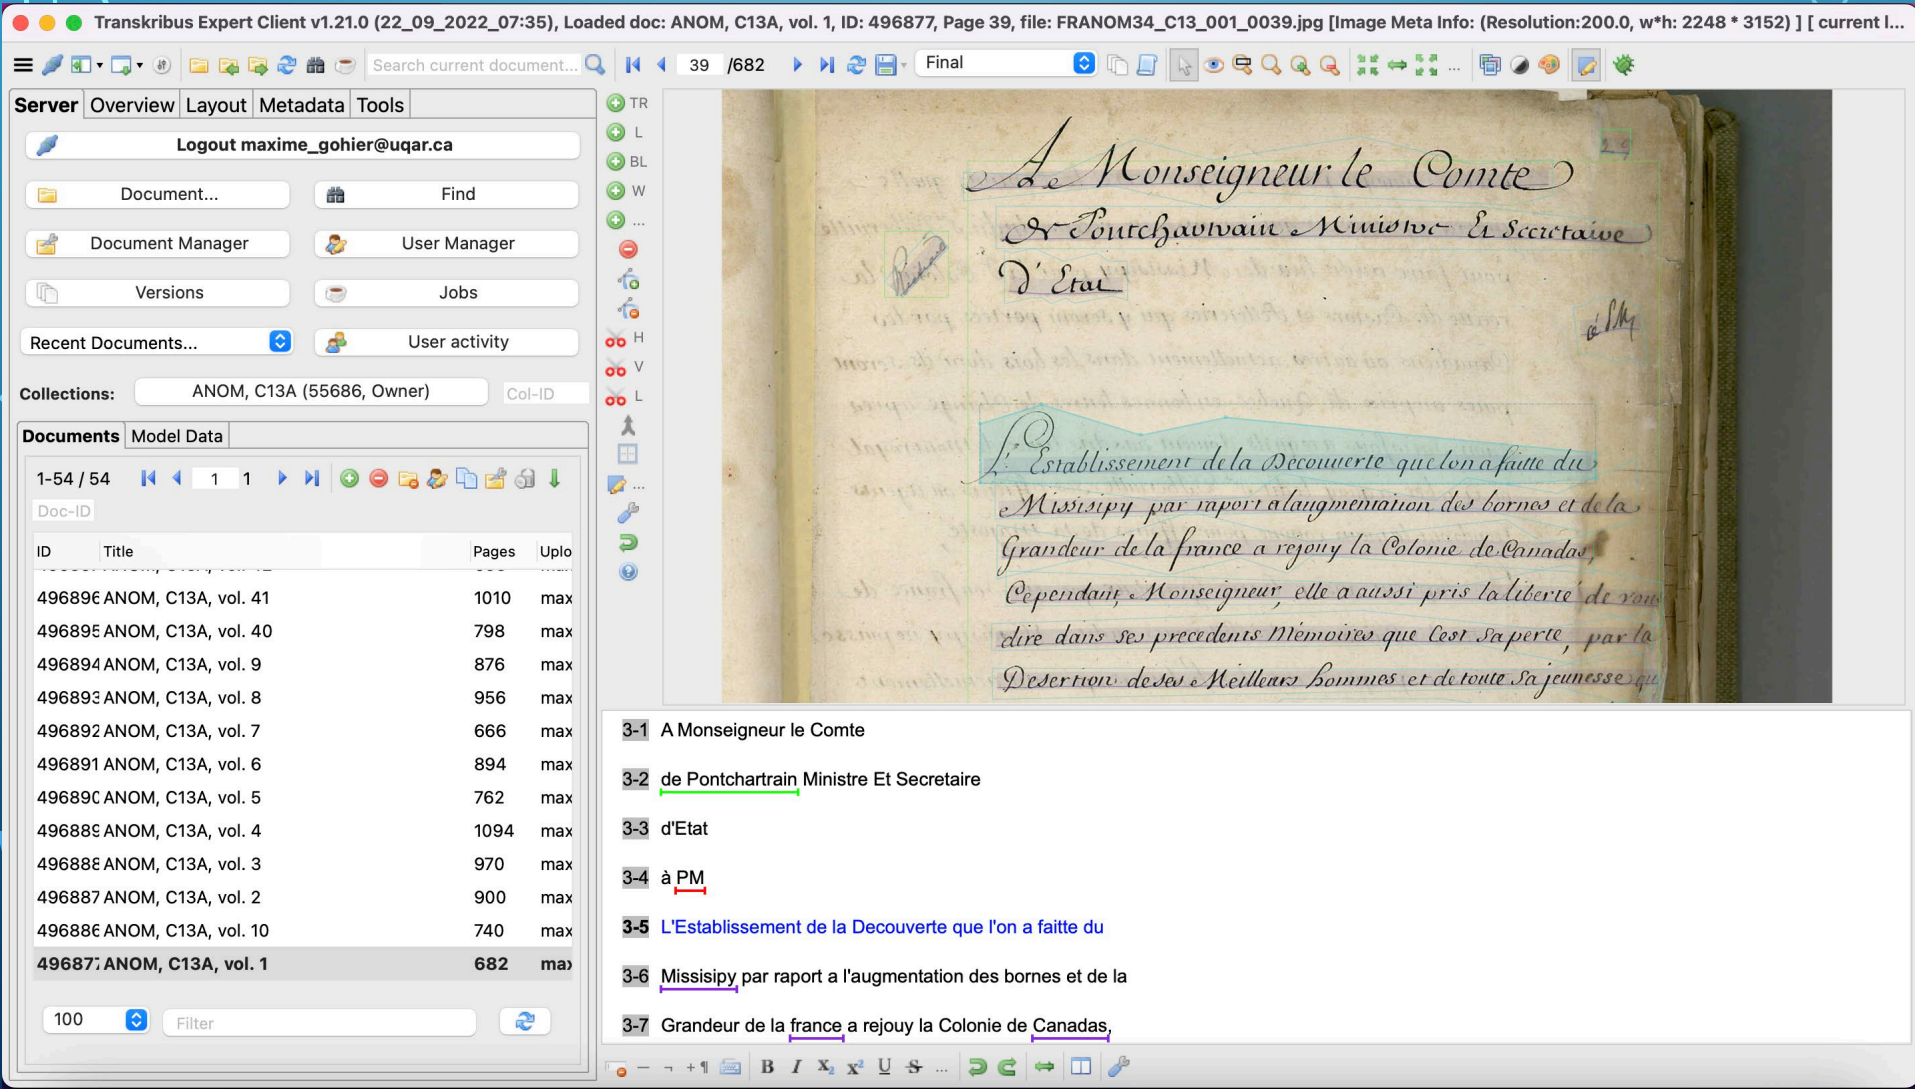 Transkribus Expert Client v1.21.0 (22_09_2022_07:35), Loaded doc: ANOM, C13A, vol. 1, ID: 496877, Page 39, file: FRANOM34_C13_001_0039.jpg [Image Meta Info: (Resolution:200.0, w*h: 2248 * 3152) ] [ current l...
Search current document... 39 /682 Final
Server Overview Layout Metadata Tools
Logout maxime_gohier@uqar.ca
Document... Find
Document Manager User Manager
Versions Jobs
Recent Documents... User activity
Collections: ANOM, C13A (55686, Owner) Col-ID
Documents Model Data
1-54 / 54 1 1
Doc-ID
ID Title Pages Uplo
496896 ANOM, C13A, vol. 41 1010 max
496895 ANOM, C13A, vol. 40 798 max
496894 ANOM, C13A, vol. 9 876 max
496893 ANOM, C13A, vol. 8 956 max
496892 ANOM, C13A, vol. 7 666 max
496891 ANOM, C13A, vol. 6 894 max
496890 ANOM, C13A, vol. 5 762 max
496889 ANOM, C13A, vol. 4 1094 max
496888 ANOM, C13A, vol. 3 970 max
496887 ANOM, C13A, vol. 2 900 max
496886 ANOM, C13A, vol. 10 740 max
496877 ANOM, C13A, vol. 1 682 max
100 Filter
TR
L
BL
W
...
H
V
L
...
A Monseigneur le Comte
de Pontchartrain Ministre Et Secretaire
D'Etat
à PM
L'Establissement de la Decouuerte que lon a faitte du
Missisipy par raport a laugmentation des bornes et de la
Grandeur de la france a rejouy la Colonie de Canadas,
Cependant, Monseigneur, elle a aussi pris la liberté de vous
dire dans ses precedents Mémoires que Cest sa perte, par la
Desertion de ses Meilleurs hommes et de toute sa jeunesse qui
3-1 A Monseigneur le Comte
3-2 de Pontchartrain Ministre Et Secretaire
3-3 d'Etat
3-4 à PM
3-5 L'Establissement de la Decouverte que l'on a faitte du
3-6 Missisipy par raport a l'augmentation des bornes et de la
3-7 Grandeur de la france a rejouy la Colonie de Canadas,
B I X₂ x² U S ...